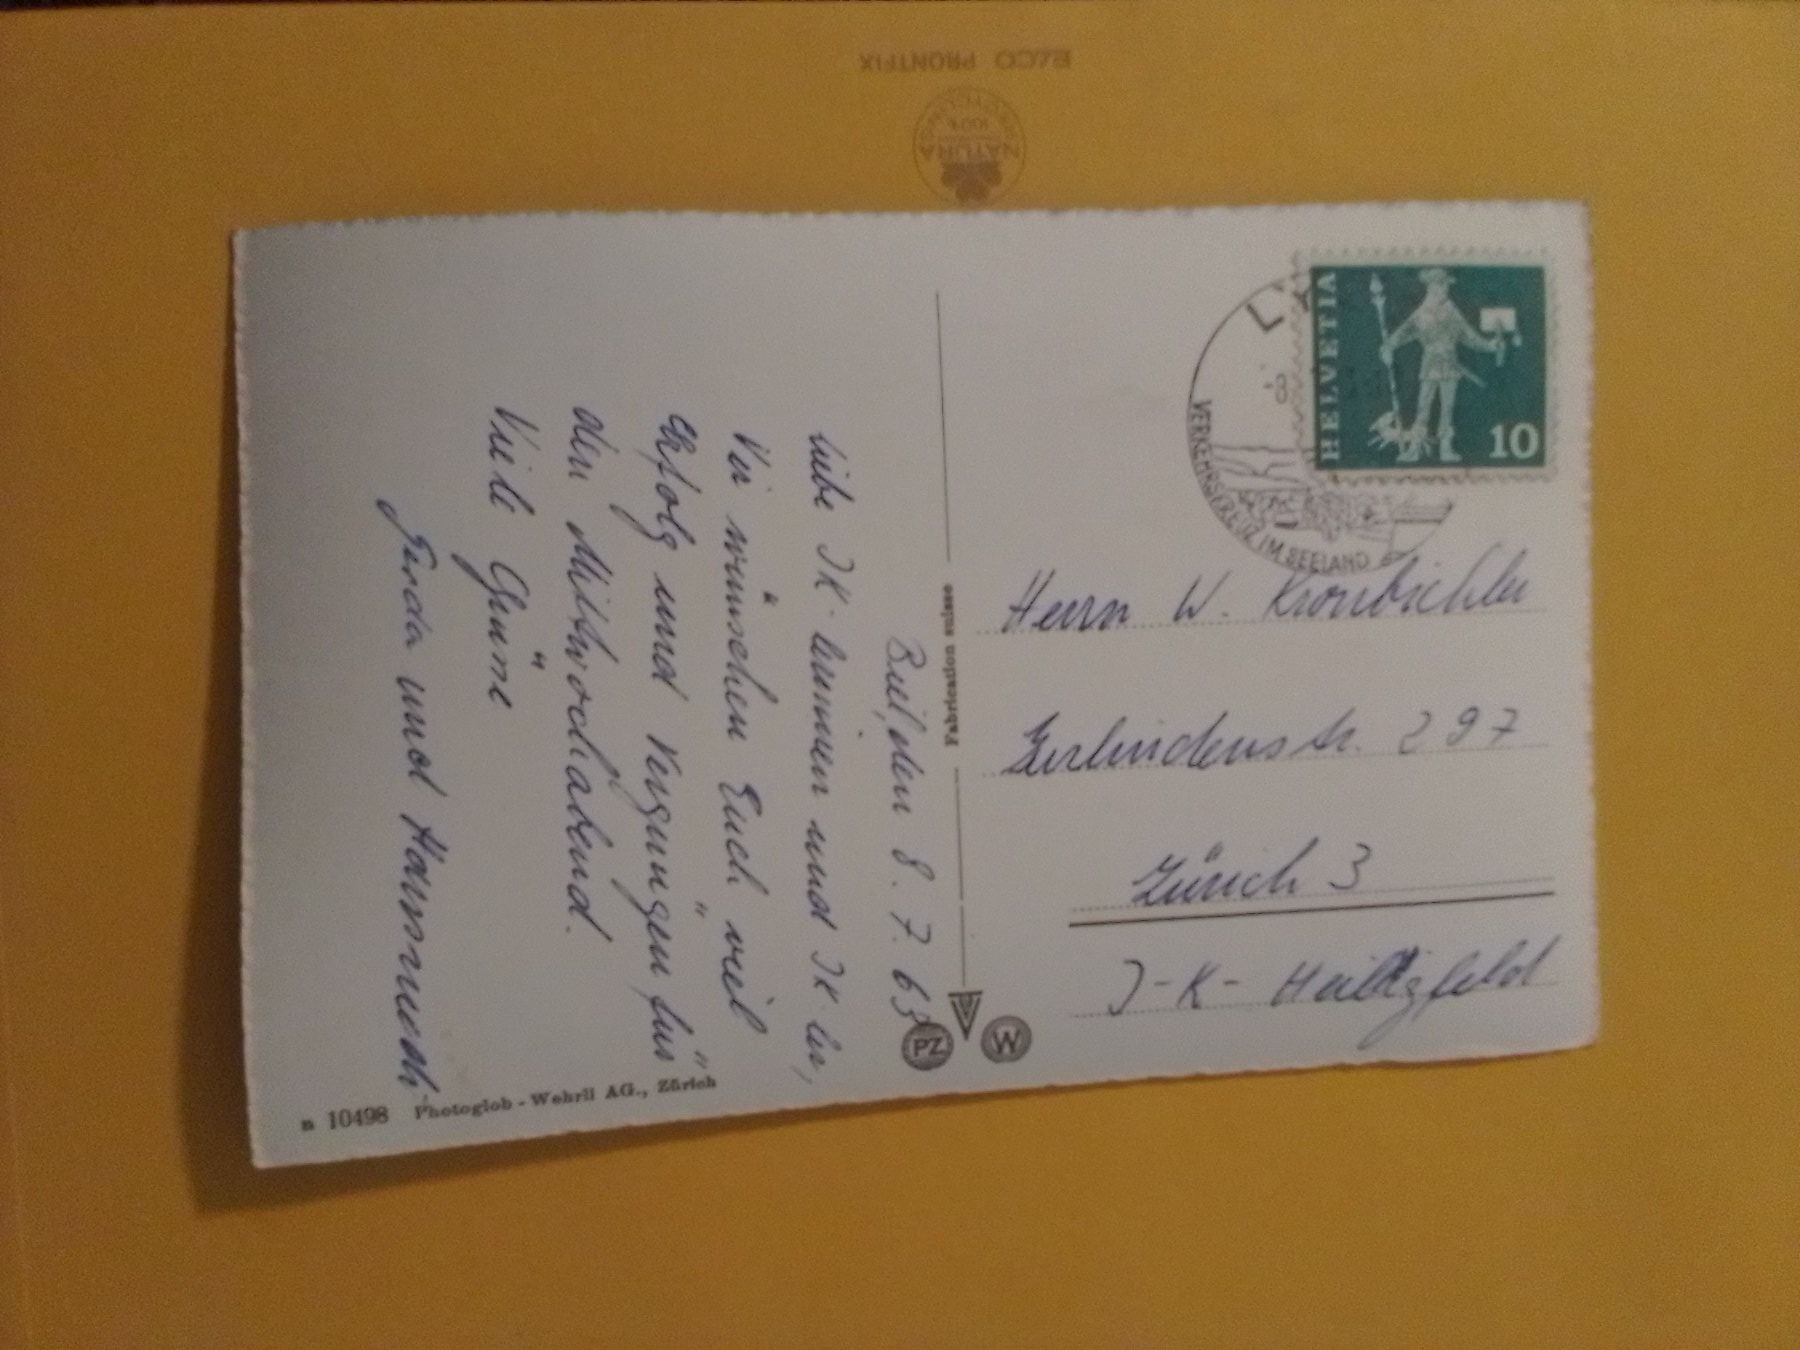 ELCO PRONTFIX
NATURA
100%
Biel, den 8. 7. 63
Liebe JK-lerinnen und JK-ler,
Wir wünschen Euch viel
Erfolg und Vergnügen für
den Mittwochabend.
Viele Grüsse
Gerda und Hansruedi
n 10498 Photoglob-Wehrli AG., Zürich
Fabrication suisse
PZ
W
HELVETIA
10
LY
-8
VERKEHRSKREUZ IM SEELAND
Herrn W. Kronbichler
Gerlindenstr. 297
Zürich 3
J-K-Heiligfeld